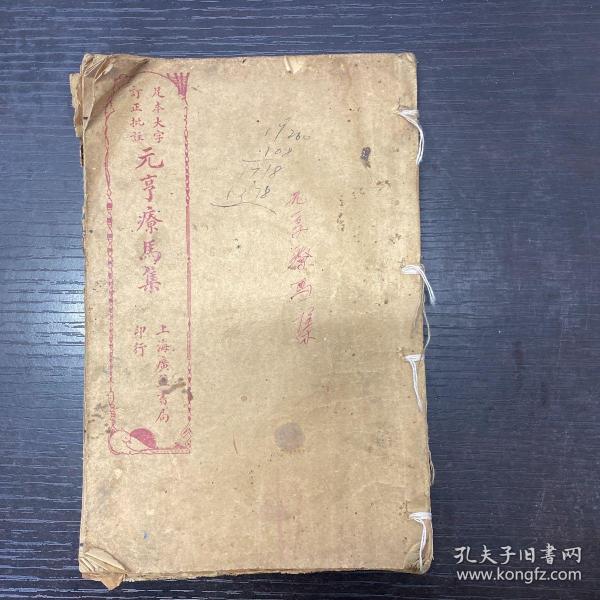 足本大字
訂正批註
元亨療馬集
上海廣益書局
印行
17260
108
1718
元亨療馬集
孔夫子旧書网
www.kongfz.com